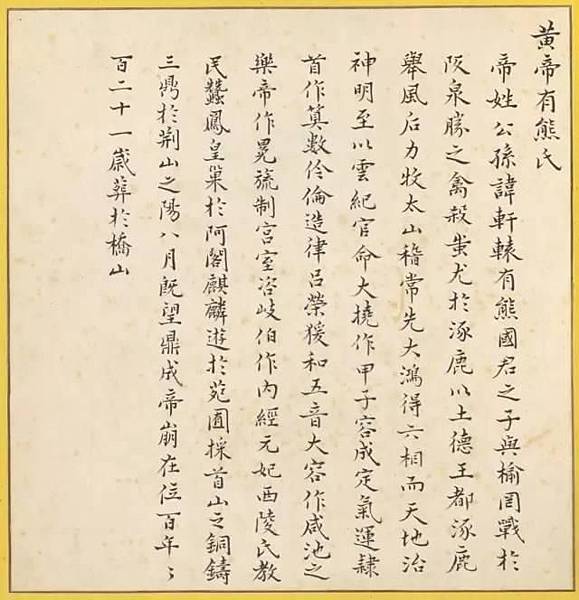 黃帝有熊氏
帝姓公孫諱軒轅有熊國君之子與榆罔戰於
阪泉勝之禽殺蚩尤於涿鹿以土德王都涿鹿
舉風后力牧太山稽常先大鴻得六相而天地治
神明至以雲紀官命大撓作甲子容成定氣運隸
首作算數伶倫造律呂榮猨和五音大容作咸池之
樂帝作冕旒制宮室咨岐伯作內經元妃西陵氏教
民蠶鳳皇巢於阿閣麒麟遊於苑囿採首山之銅鑄
三鼎於荆山之陽八月既望鼎成帝崩在位百年〻
百二十一嵗葬於橋山